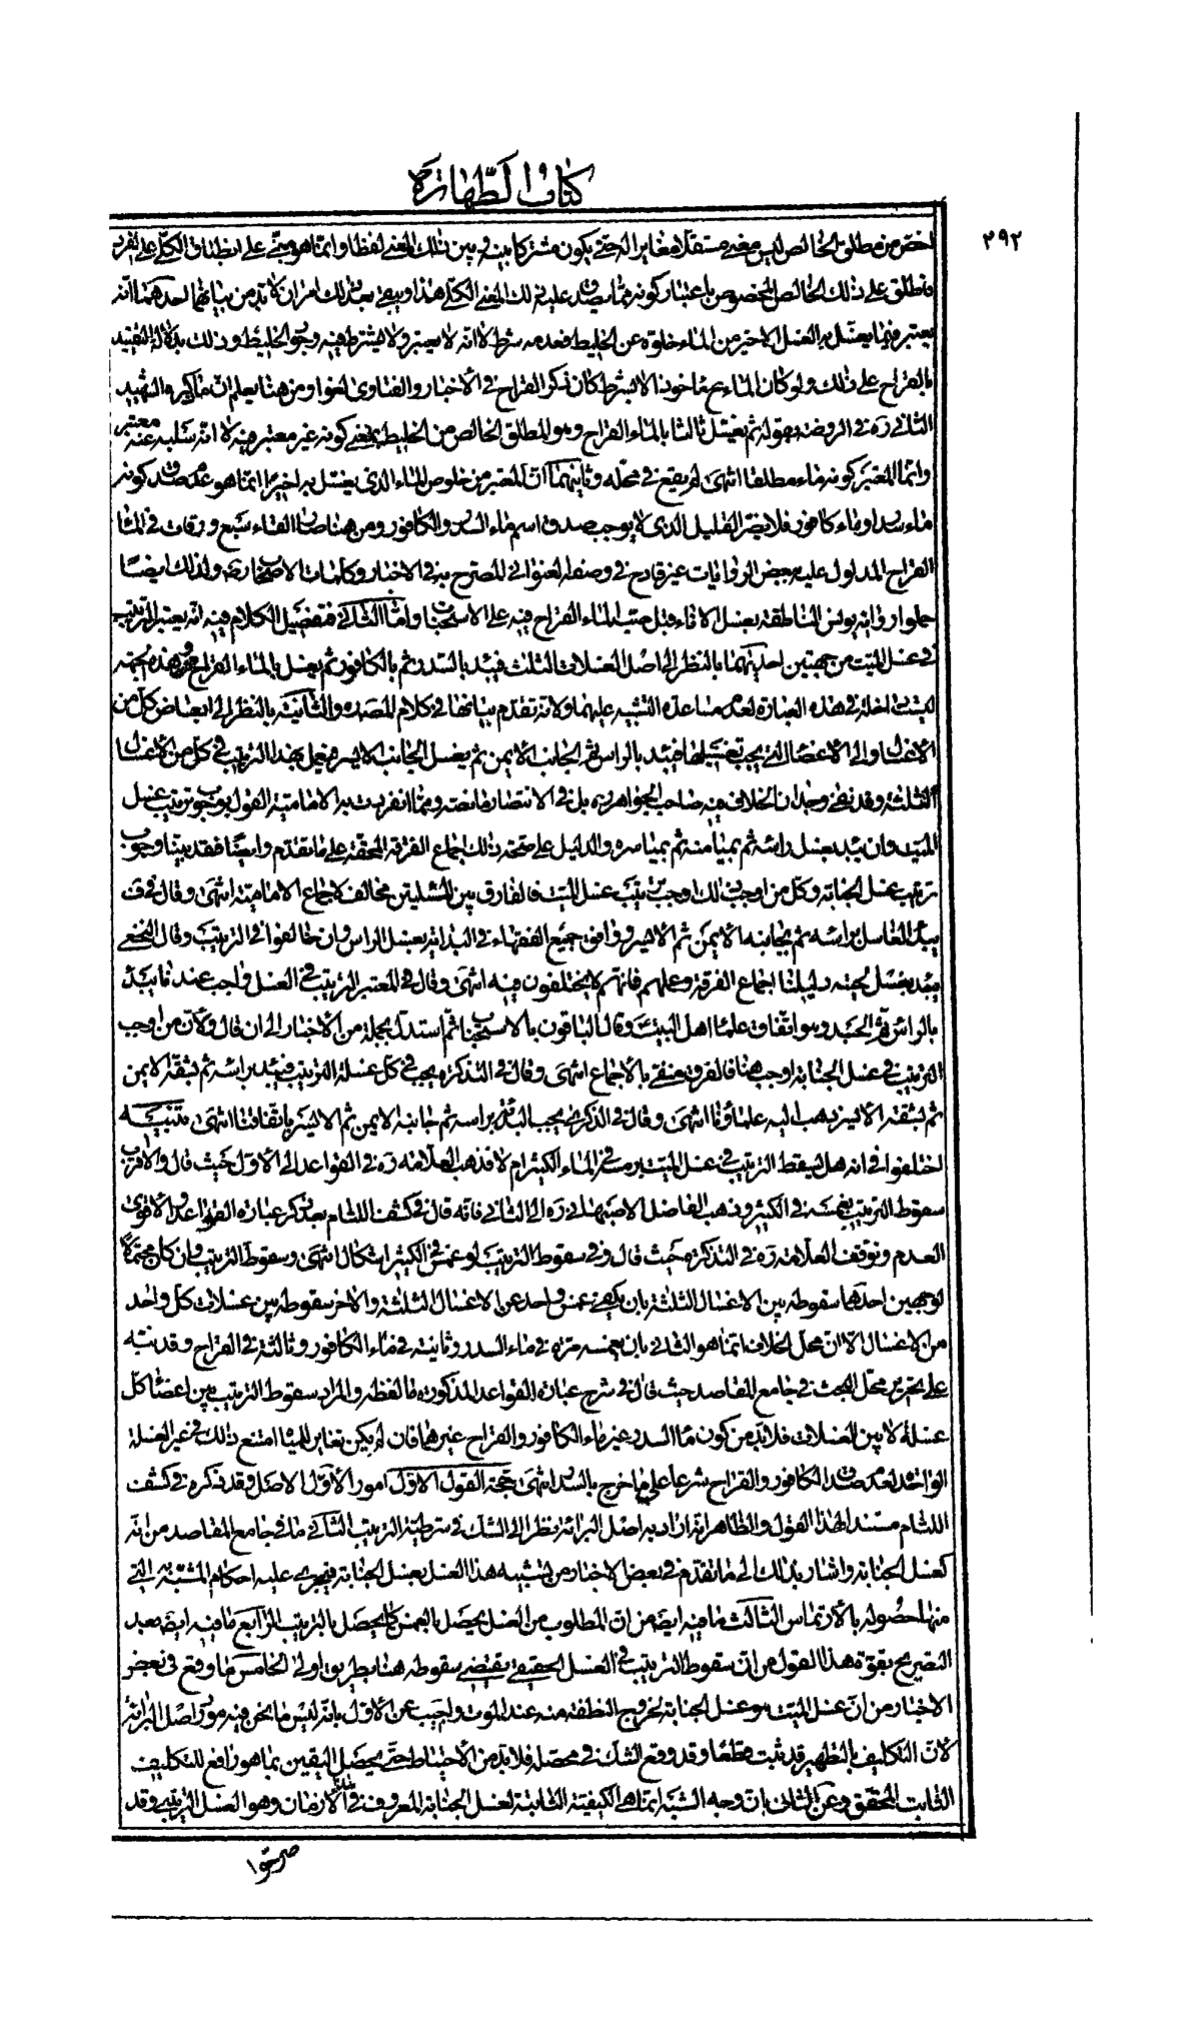 كتاب الطهارة
٢٩٢
اخص من مطلق الخالص ليس معنى مستقلا مغايرا له حتى يكون مشتركا بينه وبين ذلك المعنى لفظا وانما هو مبنى على انطباق الكلى على الفرد
فاطلق على ذلك الخالص المخصوص باعتبار كونه مما يصدق عليه ذلك المعنى الكلى هذا وبقى بعد ذلك امران لا بد من بيانهما احدهما انه
يعتبر فيما يغسل به الغسل الاخير من الماء خلوه عن الخليط فعدمه شرط لا انه لا يعتبر ولا يشترط فيه وجود الخليط وذلك بدلالة التقييد
بالقراح على ذلك ولو كان الماء مأخوذا لا بشرط كان ذكر القراح فى الأخبار والفتاوى لغوا ومن هنا يعلم ان ما ذكره الشهيد
الثانى ره فى الروضة بقوله ثم يغسل ثالثا بالماء القراح وهو المطلق الخالص من الخليط بمعنى كونه غير معتبر فيه لا ان سلبه عنه معتبر
وانما المعتبر كونه ماء مطلقا انتهى لم يقع فى محله وثانيهما ان المعتبر من خلوص الماء الذى يغسل به اخيرا انما هو عدم صدق كونه
ماء سدر او ماء كافور فلا يضر القليل الذى لا يوجب صدق اسم ماء السدر والكافور ومن هنا القاء سبع ورقات فى الماء
القراح المدلول عليه ببعض الروايات غير قادح فى وصفه العنوانى المصرح به فى الاخبار وكلمات الاصحاب ره ولذلك ايضا
حملوا رواية يونس الناطقة بغسل الاناء قبل صب الماء القراح فيه على الاستحباب واما الثانى فتفصيل الكلام فيه انه يعتبر الترتيب
فى غسل الميت من جهتين احديهما بالنظر الى اصل الغسلات الثلث فيبدء بالسدر ثم بالكافور ثم يغسل بالماء القراح وهذه الجهة
ليست داخلة فى هذه العبارة لعدم مساعدة التشبيه عليها ولانه تقدم بيانها فى كلام المصنف والثانية بالنظر الى ابعاض كل من
الاغسال والى الأعضاء التى يجب تغسيلها فيبدء بالراس ثم الجانب الايمن ثم يغسل الجانب الايسر فيعمل بهذا الترتيب فى كل من الاغسال
الثلثة وقد نفى وجدان الخلاف فيه صاحب الجواهر ره بل فى الانتصار ما نصه ومما انفردت به الامامية القول بوجوب ترتيب غسل
الميت وان يبدء بغسل رأسه ثم بميامنه ثم بمياسره والدليل على صحة ذلك اجماع الفرقة المحقة على ما تقدم وايضا فقد بينا وجوب
ترتيب غسل الجنابة وكل من اوجب ذلك اوجب ترتيب غسل الميت فالفارق بين المسئلتين مخالف لاجماع الامامية انتهى وقال فى ف
يبدأ الغاسل برأسه ثم بجانبه الأيمن ثم الايسر ووافق جميع الفقهاء فى البدأة بغسل الرأس وان خالفوا فى الترتيب وقال النخعى
يبدء بغسل لحيته دليلنا اجماع الفرقة وعملهم فانهم لا يختلفون فيه انتهى وقال فى المعتبر الترتيب فى الغسل واجب عندنا يبدء
بالرأس ثم الجسد وهو اتفاق علماء اهل البيت وقال الباقون بالاستحباب ثم استدل بجملة من الاخبار الى ان قال ولان من اوجب
الترتيب فى غسل الجنابة اوجب هنا فالفرق منفى بالأجماع انتهى وقال فى التذكرة يجب فى كل غسلة الترتيب فيبدء برأسه ثم بشقه الايمن
ثم بشقه الأيسر ذهب اليه علماؤنا انتهى وقال فى الذكرى يجب البدأة برأسه ثم جانبه الايمن ثم الايسر باتفاقنا انتهى تنبيه
اختلفوا فى انه هل يسقط الترتيب فى غسل الميت برمسه فى الماء الكثير ام لا فذهب العلامة ره فى القواعد الى الأول حيث قال والأقرب
سقوط الترتيب بغمسه فى الكثير وذهب الفاضل الاصبهانى ره الى الثانى فانه قال فى كشف اللثام بعد ذكر عبارة القواعد والاقوى
العدم وتوقف العلامة ره فى التذكرة حيث قال وفى سقوط الترتيب لو غمس فى الكثير اشكال انتهى وسقوط الترتيب وان كان محتملا
لوجهين احدهما سقوطه بين الاغسال الثلثة بان يكتفى بغمس واحد عن الاغسال الثلثة والاخر سقوطه بين غسلات كل واحد
من الاغسال الا ان محل الخلاف انما هو الثانى بان يغمسه مرة فى ماء السدر وثانية فى ماء الكافور وثالثة فى القراح وقد نبه
على تحرير محل البحث فى جامع المقاصد حيث قال فى شرح عبارة القواعد المذكورة ما لفظه والمراد سقوط الترتيب بين اعضاء كل
غسلة لا بين الغسلات فلا بد من كون ماء السدر غير ماء الكافور والقراح غيرهما فان لم يكن تغاير للمياه امتنع ذلك فى غير الغسلة
الواحدة لعدم صدق الكافور والقراح شرعا على ما خرج بالسدر انتهى حجة القول الاول امور الأول الاصل وقد ذكره فى كشف
اللثام مستندا لهذا القول والظاهر انه اراد به اصل البرائة نظرا الى الشك فى شرطية الترتيب الثانى ما فى جامع المقاصد من انه
كغسل الجنابة واشار بذلك الى ما تقدم فى بعض الاخبار من تشبيه هذا الغسل بغسل الجنابة فيجرى عليه احكام المشبه به التى
منها حصوله بالارتماس الثالث ما فيه ايضا من ان المطلوب من الغسل يحصل بالغمس كما يحصل بالترتيب الرابع ما فيه ايضا بعد
التصريح بقوة هذا القول من ان سقوط الترتيب فى الغسل الحقيقى يقتضى سقوطه هنا بطريق اولى الخامس ما وقع فى بعض
الاخبار من ان غسل الميت هو غسل الجنابة لخروج النطفة منه عند الموت واجيب عن الاول بانه ليس ما نحن فيه مورد اصل البرائة
لان التكليف بالتطهير قد ثبت قطعا وقد وقع الشك فى محصله فلا بد من الأحتياط حتى يحصل اليقين بما هو رافع للتكليف
الثابت المحقق وعن الثانى بان وجه الشبه انما هى الكيفية الثابتة لغسل الجنابة المعروف فى الازمان وهو الغسل الترتيبى وقد
صرحوا